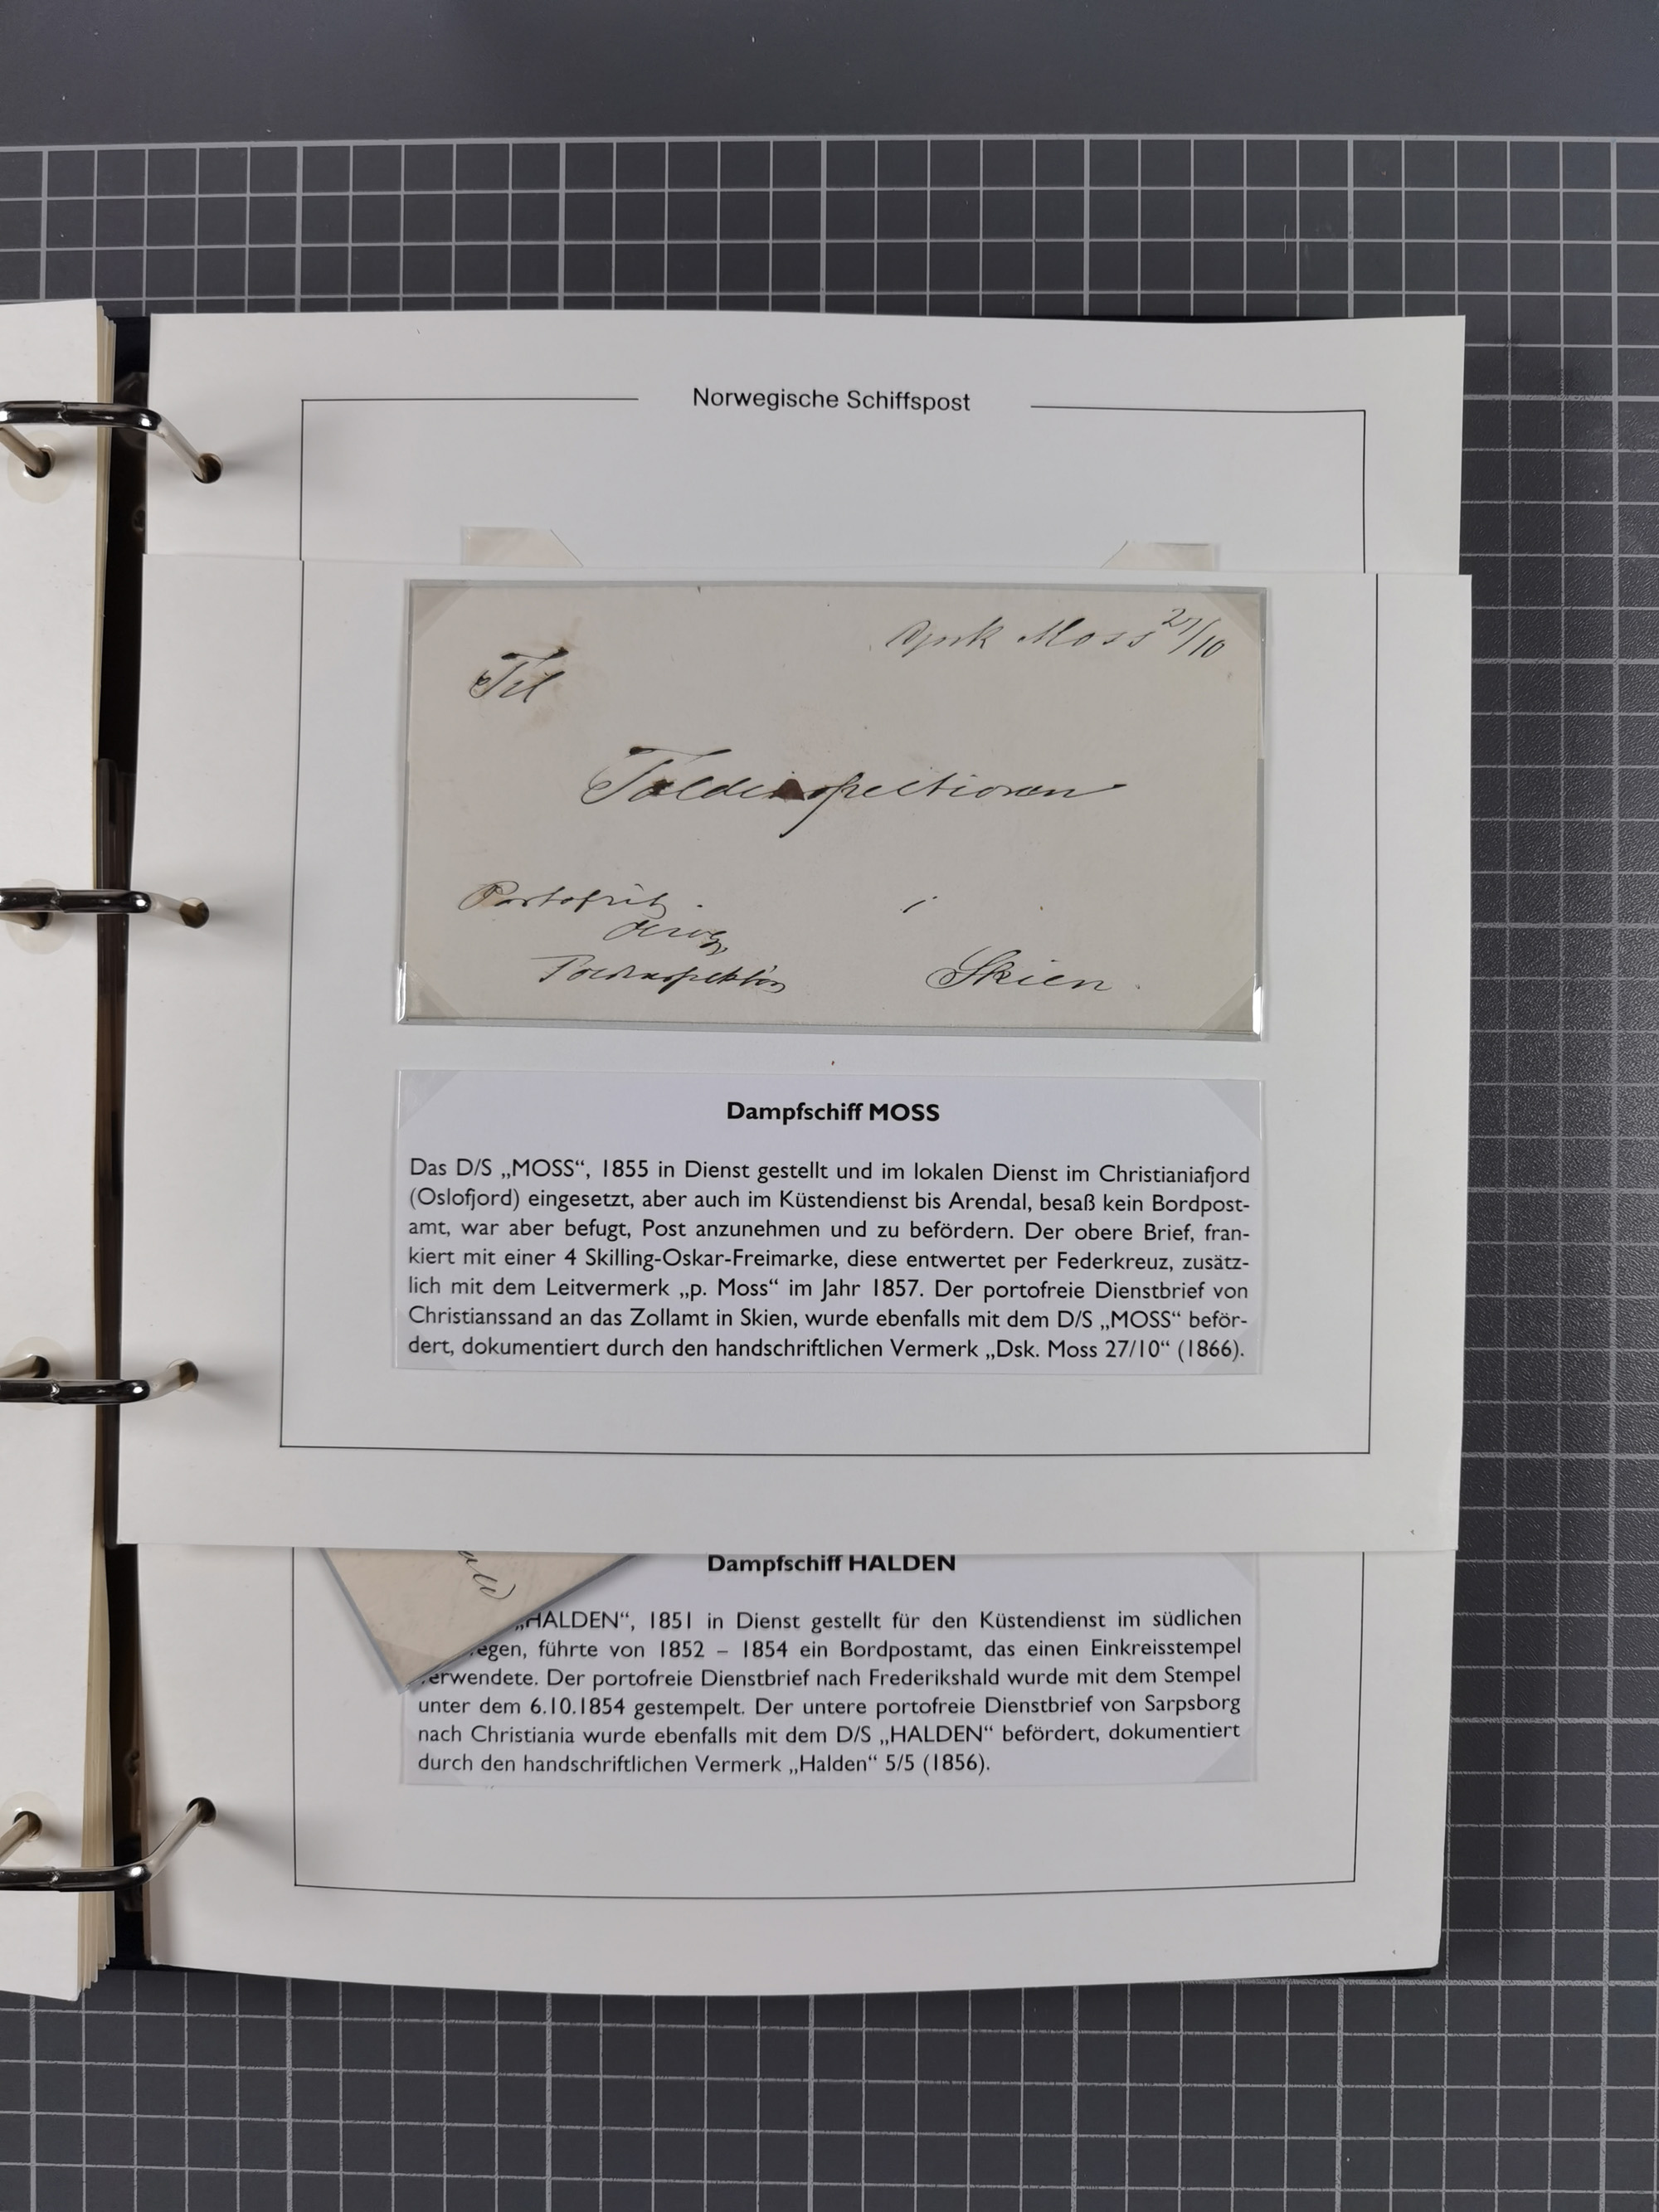 Norwegische Schiffspost
Moss 27/10
Til
Toldinspectionen
Portofrit.
i
Skien.
Dampfschiff MOSS
Das D/S „MOSS“, 1855 in Dienst gestellt und im lokalen Dienst im Christianiafjord
(Oslofjord) eingesetzt, aber auch im Küstendienst bis Arendal, besaß kein Bordpost-
amt, war aber befugt, Post anzunehmen und zu befördern. Der obere Brief, fran-
kiert mit einer 4 Skilling-Oskar-Freimarke, diese entwertet per Federkreuz, zusätz-
lich mit dem Leitvermerk „p. Moss“ im Jahr 1857. Der portofreie Dienstbrief von
Christianssand an das Zollamt in Skien, wurde ebenfalls mit dem D/S „MOSS“ beför-
dert, dokumentiert durch den handschriftlichen Vermerk „Dsk. Moss 27/10“ (1866).
Dampfschiff HALDEN
ald
„HALDEN“, 1851 in Dienst gestellt für den Küstendienst im südlichen
egen, führte von 1852 – 1854 ein Bordpostamt, das einen Einkreisstempel
erwendete. Der portofreie Dienstbrief nach Frederikshald wurde mit dem Stempel
unter dem 6.10.1854 gestempelt. Der untere portofreie Dienstbrief von Sarpsborg
nach Christiania wurde ebenfalls mit dem D/S „HALDEN“ befördert, dokumentiert
durch den handschriftlichen Vermerk „Halden“ 5/5 (1856).